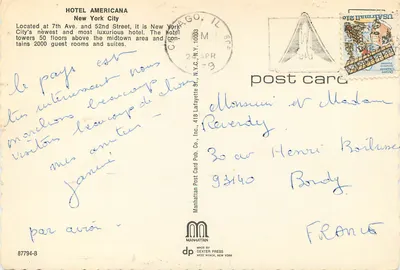 HOTEL AMERICANA
New York City
Located at 7th Ave. and 52nd Street, it is New York
City's newest and most luxurious hotel. The hotel
towers 50 floors above the midtown area and con-
tains 2000 guest rooms and suites.
CHICAGO, IL
PM
APR
USAirmail 21c
post card
le pays est
très intéressant nous
marchons beaucoup
visitons beaucoup de choses
mes amitiés
par avion
Manhattan Post Card Pub. Co., Inc., 418 Lafayette St., N.Y.C., N.Y. 10003
Monsieur et Madame
Reverdy
30 av Henri
93140 Bondy
FRANCE
MANHATTAN
dp
MADE BY
DEXTER PRESS
WEST NYACK, NEW YORK
87794-B